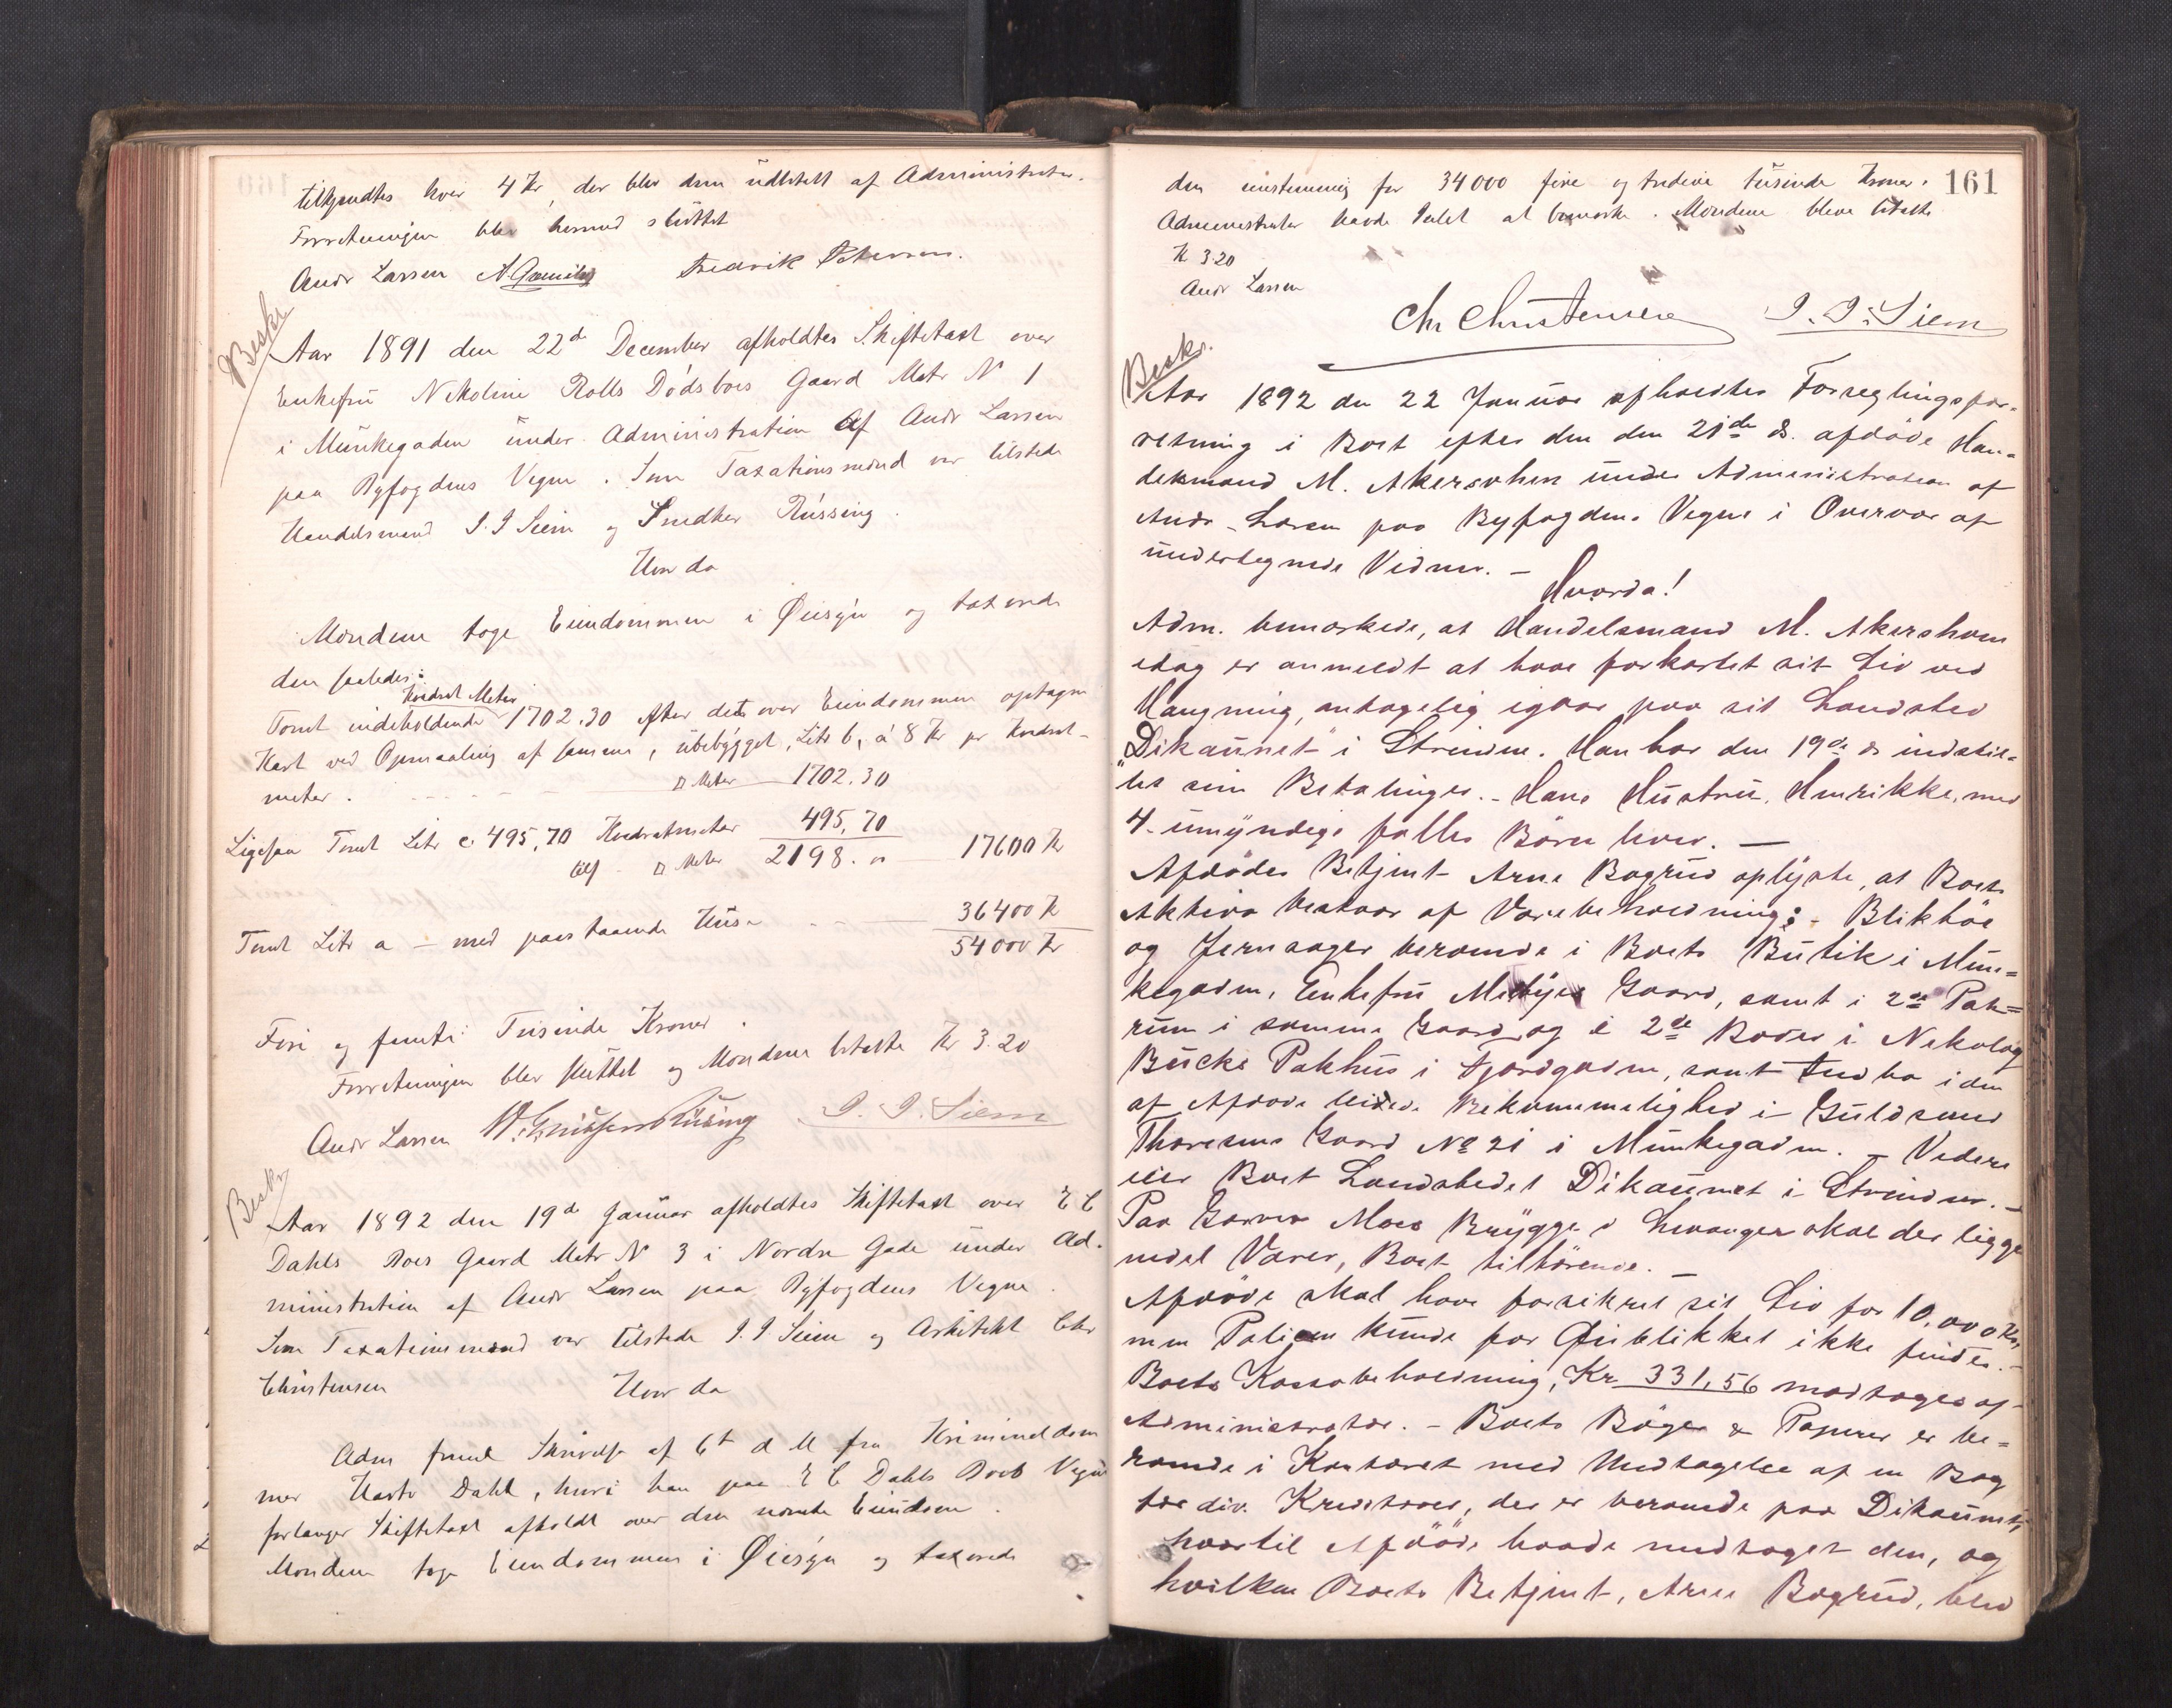 tilkjendtes hver 4 Kr, der blev dem udbetalt af Administrator.
Forretningen blev hermed sluttet
Andr Larsen Fredrik Petersen.
Beskr
Aar 1891 den 22d December afholdtes Skiftetaxt over
Enkefru Nikoline Rolls Dödsboes Gaard Matr N 1
i Munkegaden under Administration af Andr Larsen
paa Byfogdens Vegne. Som Taxationsmænd var tilstede
Handelsmand I. I Siem og Snedker Rüssing.
Hvor da
Mændene toge Eiendommen i Øiesyn og taxerede
den saaledes:
Kvadrat Meter
Tomt indeholdende 1702.30 efter det over Eiendommen optagne
Kart ved Opmaaling af samme, ubebygget, Litr b, á 8 Kr pr Kvadrat-
meter. □ Meter 1702.30
Ligesaa Tomt Litr c. 495,70 Kvadratmeter 495,70
□ Meter 2198.00 17600 Kr
Tomt Litr a - med paastaaende Huse 36400 Kr
54000 Kr
Fire og femti Tusinde Kroner.
Forretningen blev sluttet og Mændene betalte Kr 3.20
Andr Larsen I. I. Siem
Beskr
Aar 1892 den 19de Januar afholdtes Skiftetaxt over E C
Dahls Boes Gaard Matr N 3 i Nordre Gade under Ad-
ministration af Andr Larsen paa Byfogdens Vegne.
Som Taxationsmænd var tilstede I. I Siem og Arkitekt Chr
Christensen Hvor da
Adm freml Skrivelse af 6t d M fra Kriminaldom
mer Dahl, hvori han paa E C Dahls Boes Vegne
forlanger Skiftetaxt afholdt over den nævnte Eiendom.
Mændene toge Eiendommen i Øiesyn og taxerede
161
den enstemmig for 34000 fire og tredive tusinde Kroner.
Administrator havde Intet at bemærke. Mændene bleve betalte
K 3.20
Andr Larsen
Chr Christensen I. I. Siem
Beskr.
Aar 1892 den 22 Januar afholdtes Forseglingsfor-
retning i Boet efter den den 21de ds. afdöde Han-
delsmand M. Akersohem under Administration af
Andr. Larsen paa Byfogdens Vegne i Overvær af
undertegnede Vidner. -
Hvorda!
Adm. bemærkede, at Handelsmand M. Akershem
idag er anmeldt at have forkortet sit Liv ved
Hængning, antagelig igaar paa sit Landsted
"Dikaunet" i Strinden. Han har den 19de ds indstil-
let sine Betalinger. - Hans Hustru, Henrikke, med
4 umyndige fælles Börn lever. -
Afdödes Betjent Arne Bogrud oplyste, at Boets
Aktiva bestaar af Varebeholdning: - Bliktöi
og Jernsager beroende i Boets Butik i Mun-
kegaden, Enkefru Gaard, samt i 2de Pak-
rum i samme Gaard og i 2de Boder i Nekolay
Bucks Pakhus i Fjordgaden, samt Indbo i den
af Afdöde leiede Bekvemmelighed i Guldsmed
Thoresens Gaard No 21 i Munkegaden. - Videre
eier Boet Landstedet Dikaunet i Strinden. -
Paa Garver Moes Brygge i Levanger skal der ligge
endel Varer, Boet tilhörende. -
Afdöde skal have forsikret sit Liv for 10,000 Kr,
men Policen kunde for Öieblikket ikke findes. -
Boets Kassabeholdning, Kr 331,56 modtoges af
Administrator. - Boets Böger & Papirer er be-
roende i Kontoret med Undtagelse af en Bog
for div. Kreditorer, der er beroende paa Dikaunet,
hvortil Afdöde havde medtaget den, og
hvilken Boets Betjent, Arne Bogrud, blev